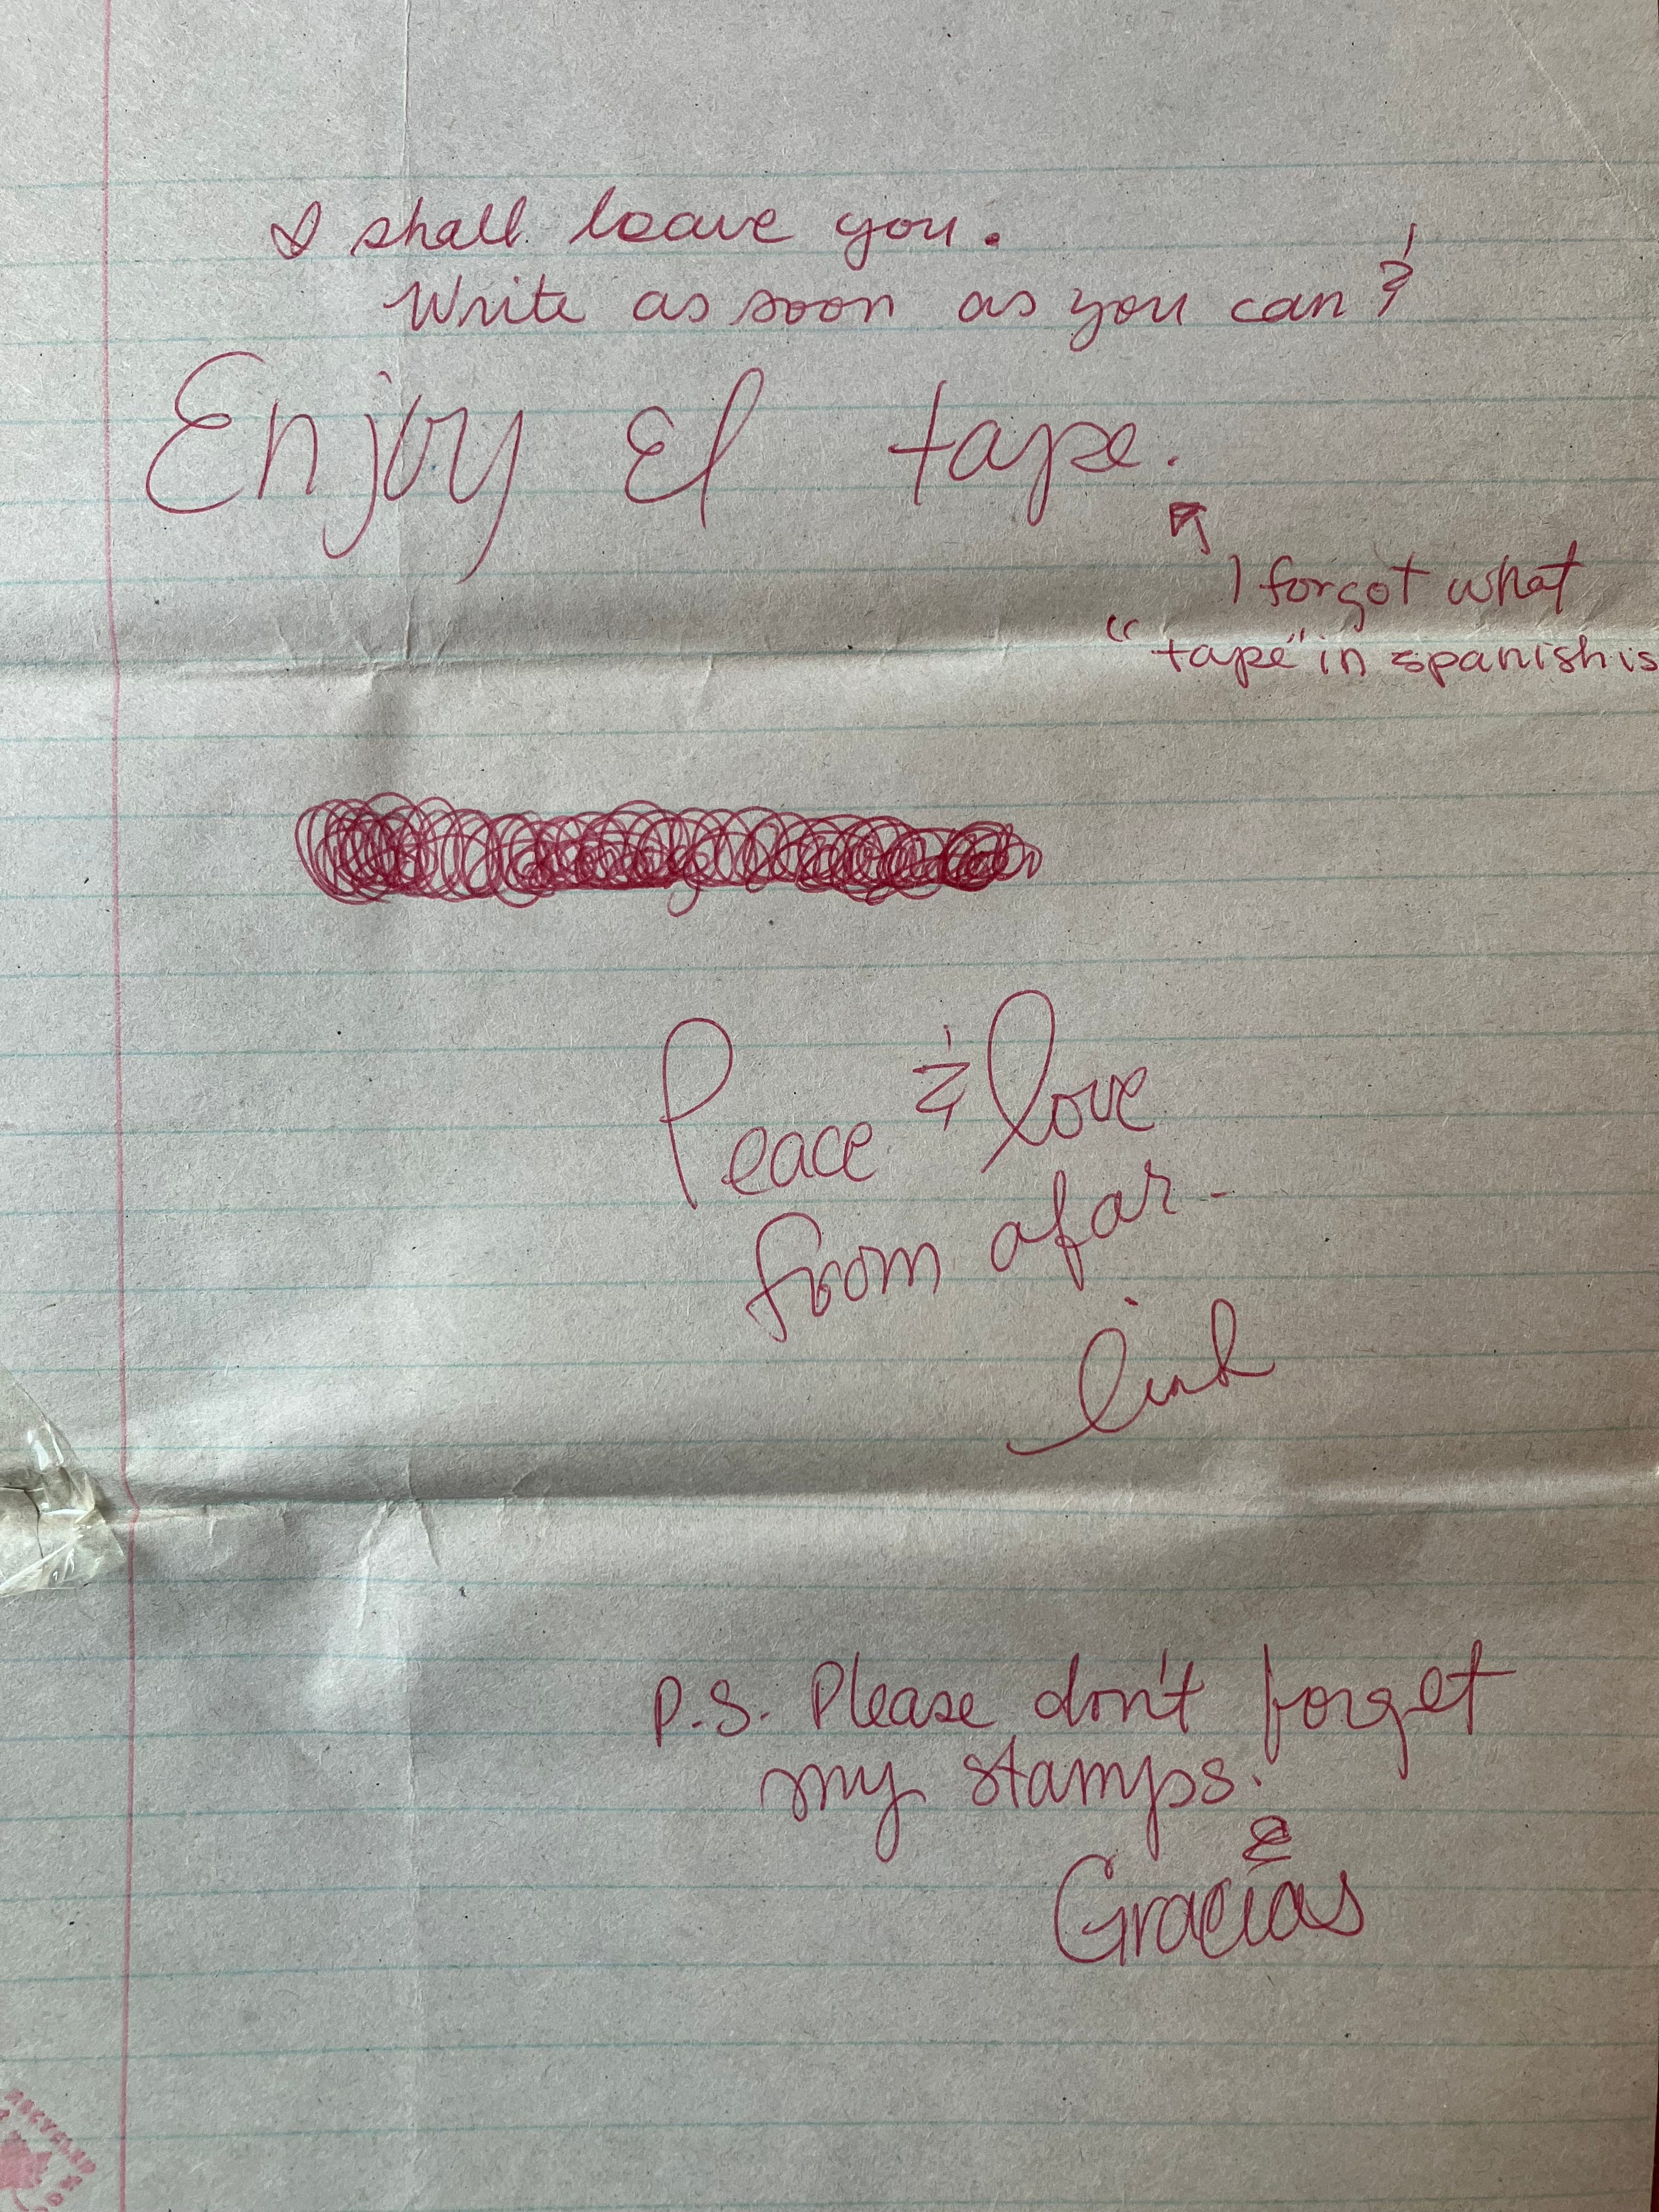 I shall leave you.
Write as soon as you can &
Enjoy El tape.
I forgot what
"tape" in spanish is
Peace & love
from afar -
link
P.S. Please don't forget
my stamps.
&
Gracias
RECYCLED